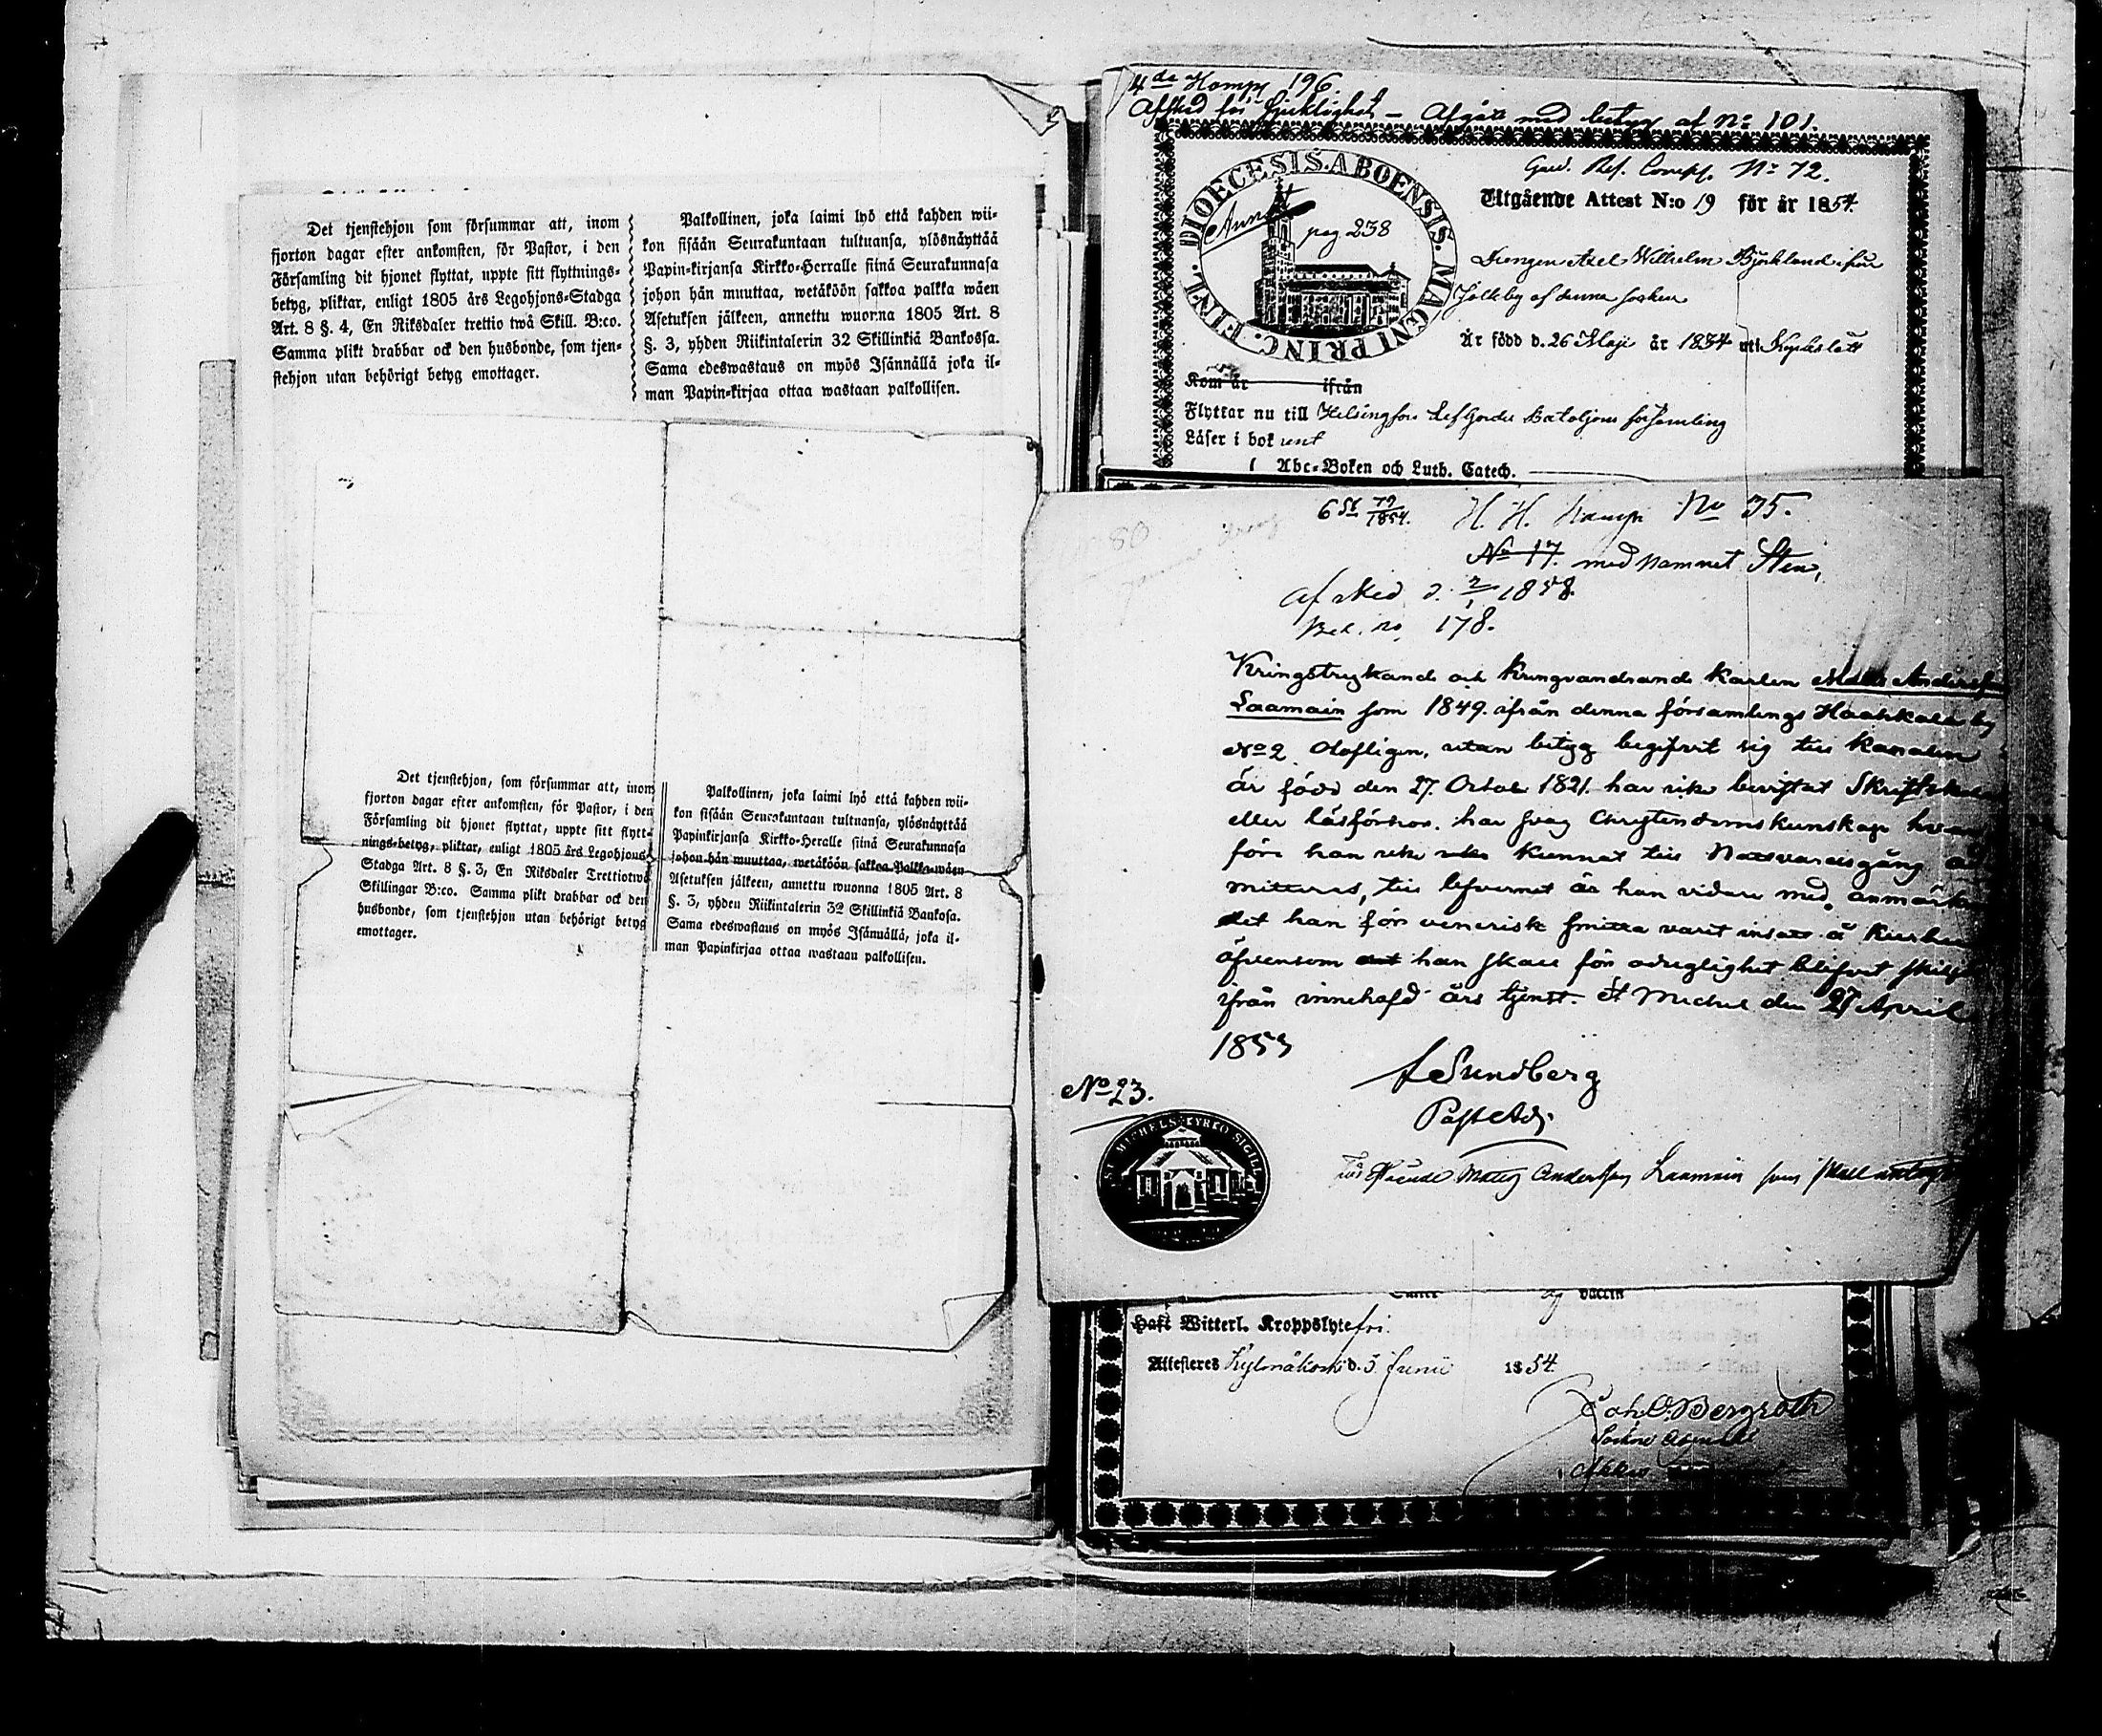 Det tjenstehjon som försummar att, inom
fjorton dagar efter ankomsten, för Pastor, i den
Församling dit hjonet flyttat, uppte sitt flyttnings-
betyg, pliktar, enligt 1805 års Legohjons-Stadga
Art. 8 §. 4, En Riksdaler trettio twå Skill. B:co.
Samma plikt drabbar ock den husbonde, som tjen-
stehjon utan behörigt betyg emottager.
Palkollinen, joka laimi lyö että kahden wii-
kon sisään Seurakuntaan tultuansa, ylösnäyttää
Papin-kirjansa Kirkko-Herralle siinä Seurakunnasa
johon hän muuttaa, wetäköön sakkoa palkka wäen
Asetuksen jälkeen, annettu wuonna 1805 Art. 8
§. 3, yhden Riikintalerin 32 Skillinkiä Bankossa.
Sama edeswastaus on myös Isännällä joka il-
man Papin-kirjaa ottaa wastaan palkollisen.
Det tjenstehjon, som försummar att, inom
fjorton dagar efter ankomsten, för Pastor, i den
Församling dit hjonet flyttat, uppte sitt flytt-
nings-betyg, pliktar, enligt 1805 års Legohjons-
Stadga Art. 8 §. 3, En Riksdaler Trettiotwå
Skillingar B:co. Samma plikt drabbar ock den
husbonde, som tjenstehjon utan behörigt betyg
emottager.
Palkollinen, joka laimi lyö että kahden wii-
kon sisään Seurakuntaan tultuansa, ylösnäyttää
Papinkirjansa Kirkko-Heralle siinä Seurakunnasa
johon hän muuttaa, wetäköön sakkoa Palkka-wäen
Asetuksen jälkeen, annettu wuonna 1805 Art. 8
§. 3, yhden Riikintalerin 32 Skillinkiä Bankosa.
Sama edeswastaus on myös Isännällä, joka il-
man Papinkirjaa ottaa wastaan palkollisen.
4de Komp 196.
Afsked för sjuklighet – Afgått med betyg af No 101.
Gard. Res. Comp. No 72.
DIOECESIS. ABOENSIS. MAGNI PRINC. FINL.
pag 238
Utgående Attest N:o 19 för år 1854.
Drengen Axel Wilhelm Björklund ifrån
Jolkby af denna socken
Är född d. 26 Maji år 1834 uti Kyrkslätt
Kom år ifrån
Flyttar nu till Helsingfors Lif Gardes Bataljons församling
Läser i bok rent
Abc-Boken och Luth. Catech.
80
6 St 72/1854. H. H. Komp No 35.
No 17. med namnet Sten,
Afsked d. 2/1 1858.
Bet. no 178.
Kringstrykand och kringvandrand Karlen Matts Anderss
Laamain som 1849. ifrån denna församlings by
No 2 Olofligen, utan betyg begifvit sig till Kanalen
är född den 27. Octob 1821. har icke bevistat Skriftskol
eller läsförhör. har svag Christendomskunskap hvar
före han icke kunnat till Nattvardsgång ad
mitteras, till lefvernet är han vidare med anmärk
det han för venerisk smitta varit insatt å Kurhu
äfvensom han skall för odugelighet blifvit skilgd
ifrån innehafd års tjenst. St Michel den 27 April
1853
Sundberg
Past. Adj.
No 23.
ST. MICHELS KYRKO SIGILL
Matts Andersson Laamain som skall antag
vaccin
Haft Witterl. Kroppslyte fri.
Attesteras Kylmäkoski d. 3 Junii 1854.
Joh. O. Bergroth